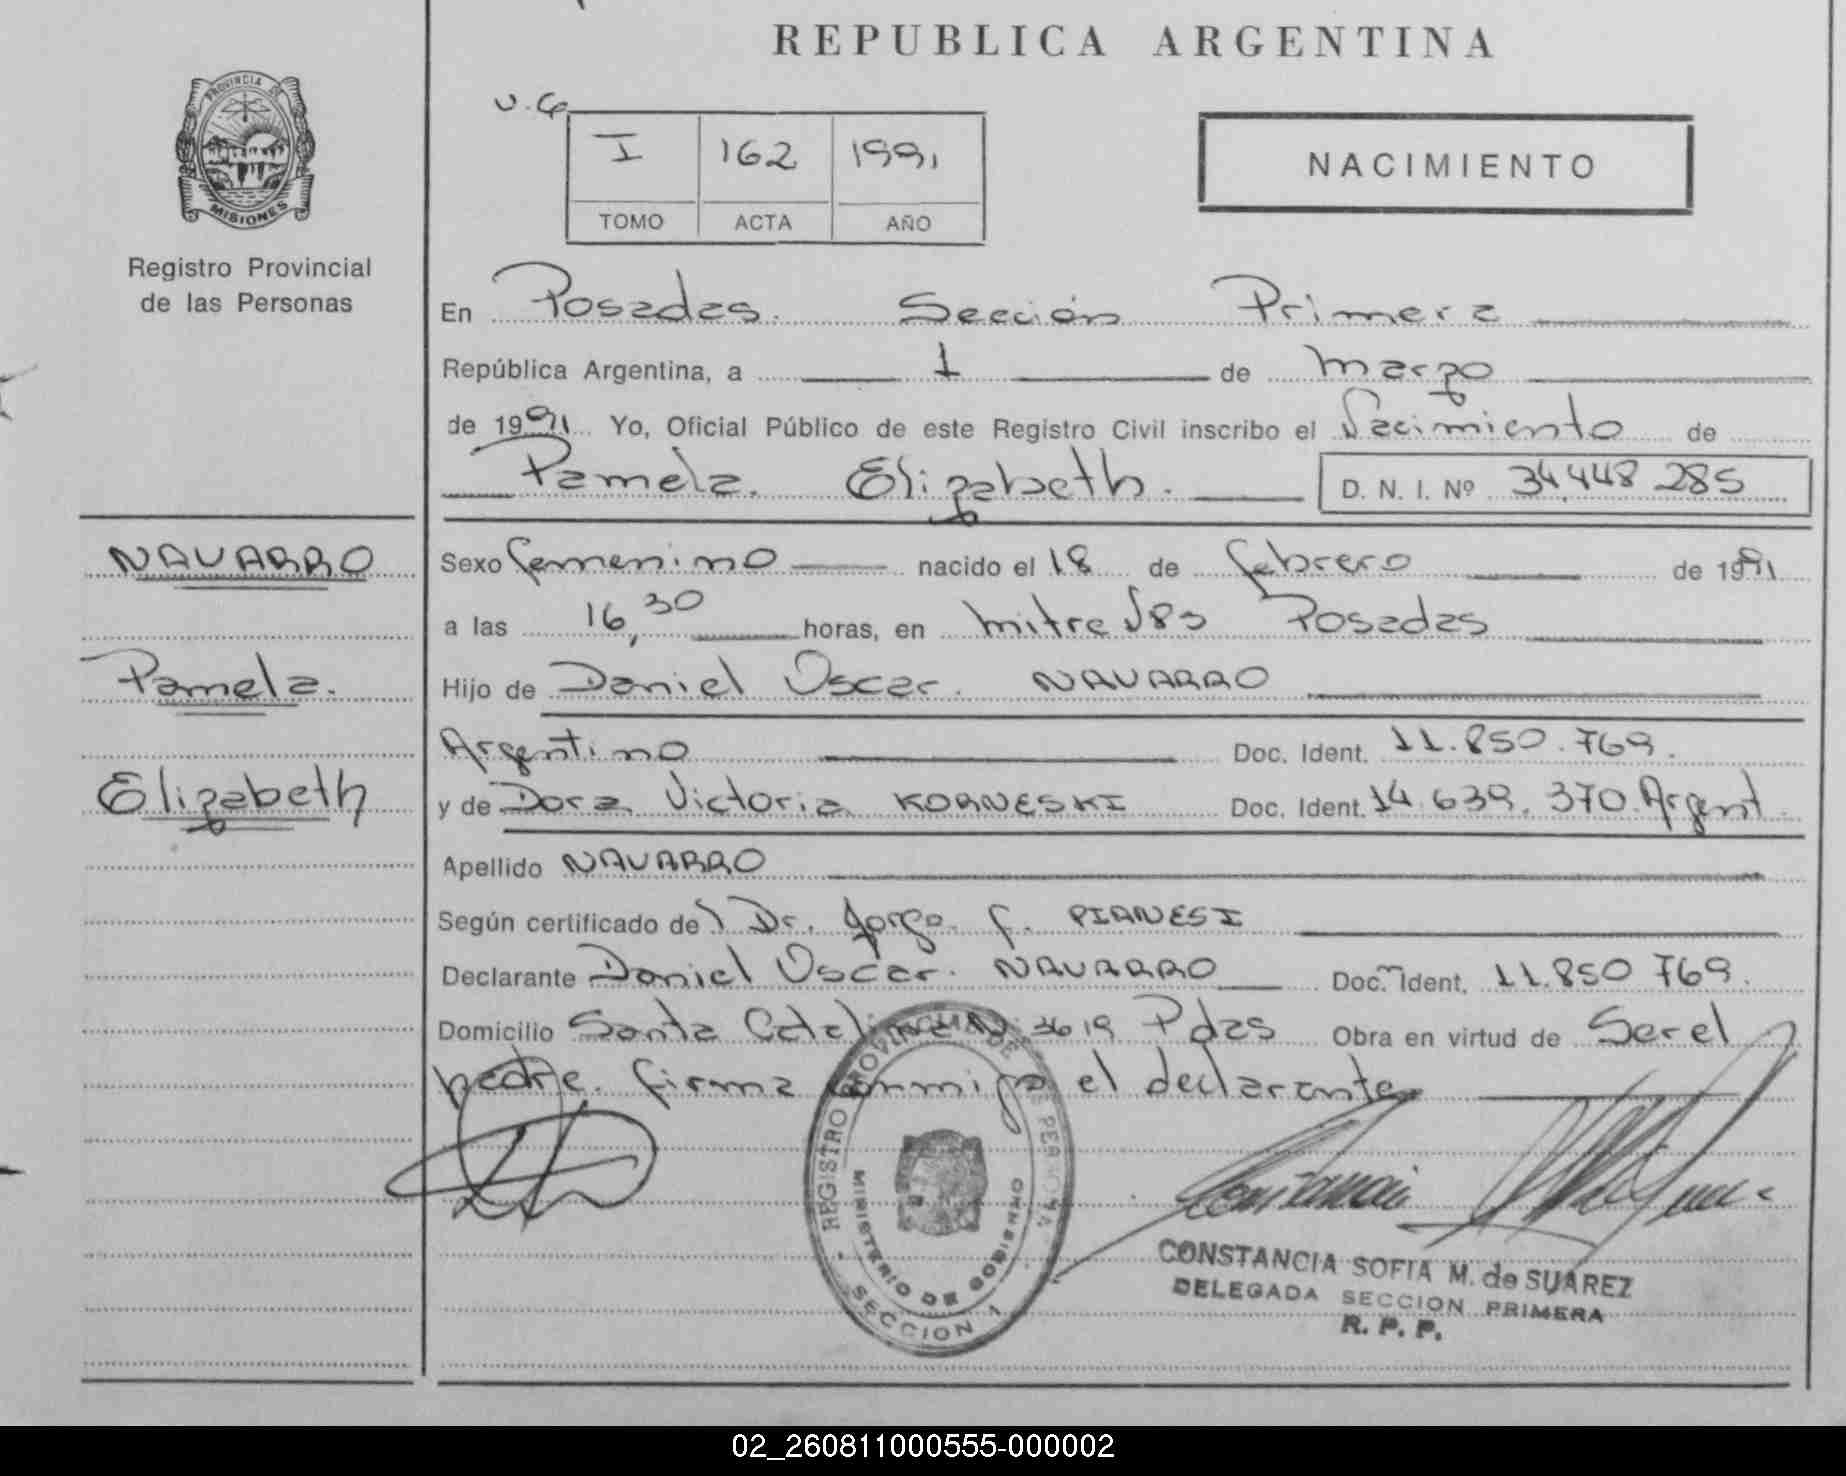 REPUBLICA ARGENTINA
PROVINCIA DE
MISIONES
Registro Provincial
de las Personas
I 162 1991
TOMO ACTA AÑO
NACIMIENTO
En Posadas. Sección Primera
República Argentina, a 1 de marzo
de 1991 Yo, Oficial Público de este Registro Civil inscribo el Nacimiento de
Pamela. Elizabeth. D. N. I. Nº 34.448 285
NAVARRO
Pamela.
Elizabeth
Sexo femenino nacido el 18 de febrero de 1991
a las 16,30 horas, en mitre Posadas
Hijo de Daniel Oscar. NAVARRO
Argentino Doc. Ident. 11.850.769.
y de Dora Victoria KORNESKI Doc. Ident. 14.639.370 Argent.
Apellido NAVARRO
Según certificado del Dr. Jorge F. PIANESI
Declarante Daniel Oscar. NAVARRO Doc. Ident. 11.850 769.
Domicilio Santa Catalina Nº 3619 Pdas Obra en virtud de Ser el
padre. firma conmigo el declarante
REGISTRO PROVINCIAL DE
MINISTERIO DE GOBIERNO
SECCION 1
CONSTANCIA SOFIA M. de SUAREZ
DELEGADA SECCION PRIMERA
R. P. P.
02_260811000555-000002